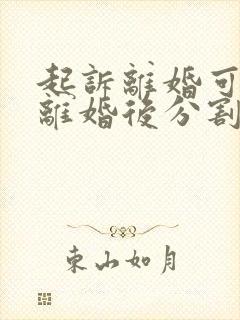 起訴離婚可
離婚後分割
東山如月